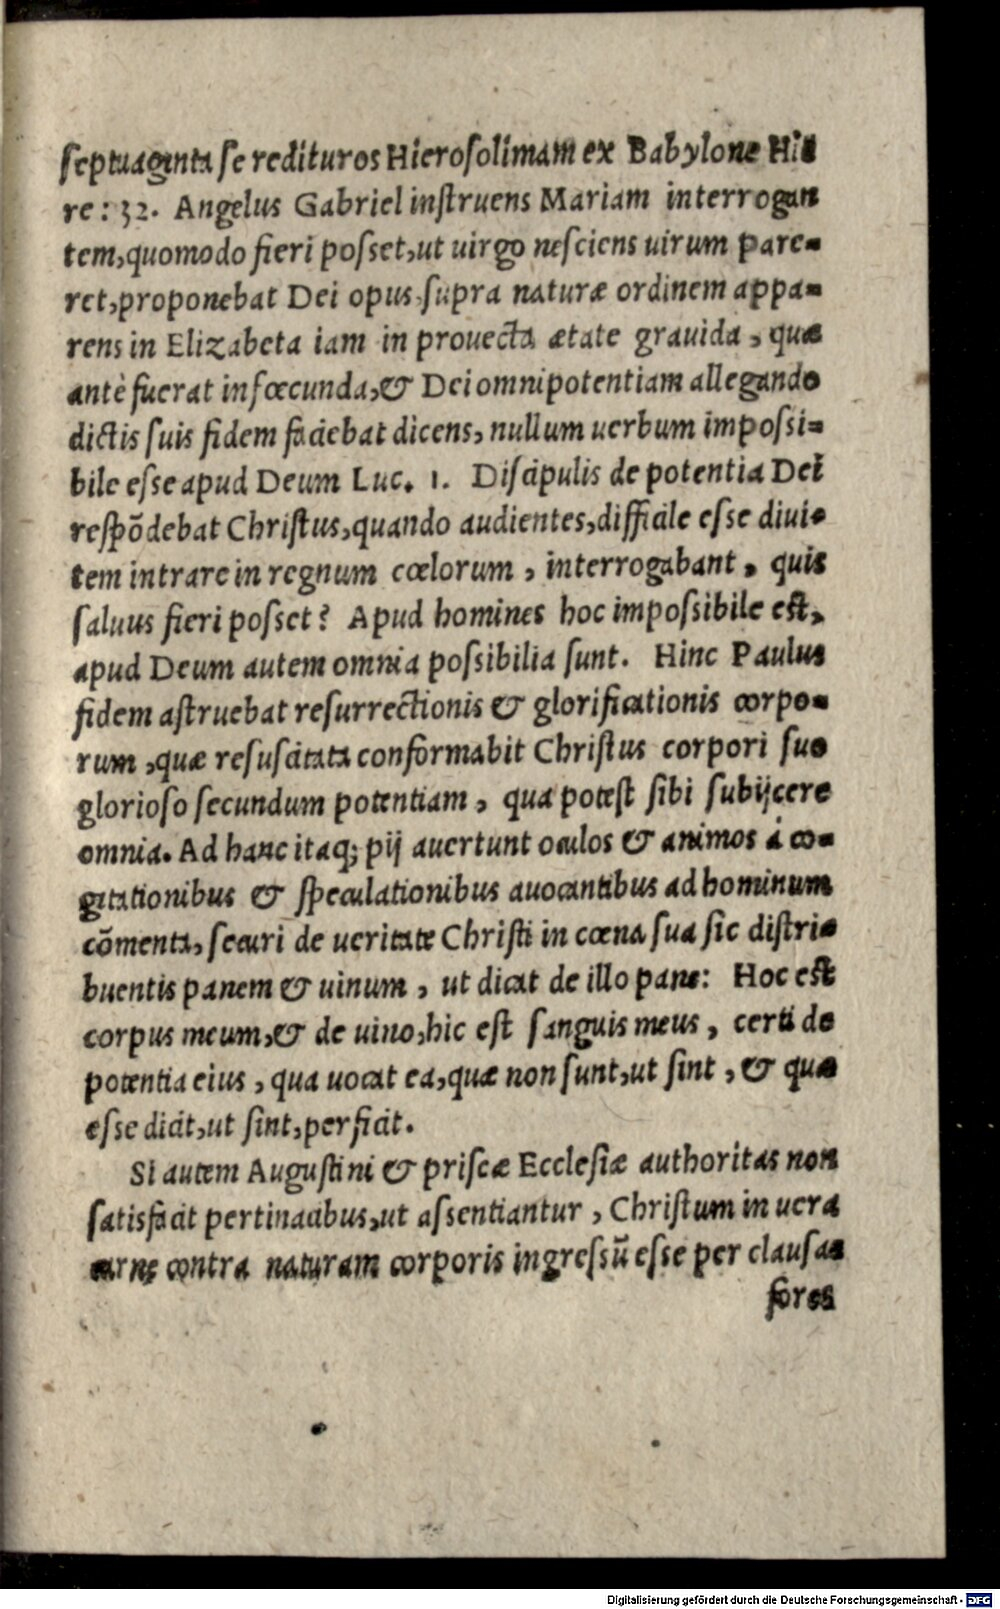 ſeptuaginta ſe redituros Hieroſolimam ex Babylone Hie
re: 32. Angelus Gabriel inſtruens Mariam interrogan
tem, quomodo fieri poſſet, ut uirgo neſciens uirum pare-
ret, proponebat Dei opus ſupra naturæ ordinem appa-
rens in Elizabeta iam in prouecta ætate grauida, quæ
antè fuerat infœcunda, & Dei omnipotentiam allegando
dictis ſuis fidem faciebat dicens, nullum uerbum impoſſi-
bile eſſe apud Deum Luc. 1. Diſcipulis de potentia Dei
reſpõdebat Chriſtus, quando audientes, difficile eſſe diui-
tem intrare in regnum cœlorum, interrogabant, quis
ſaluus fieri poſſet? Apud homines hoc impoſſibile eſt,
apud Deum autem omnia poſſibilia ſunt. Hinc Paulus
fidem aſtruebat reſurrectionis & glorificationis corpo-
rum, quæ reſuſcitata conformabit Chriſtus corpori ſuo
glorioſo ſecundum potentiam, qua poteſt ſibi ſubijcere
omnia. Ad hanc itaq; pij auertunt oculos & animos á co-
gitationibus & ſpeculationibus auocantibus ad hominum
cõmenta, ſecuri de ueritate Chriſti in cœna ſua ſic diſtri-
buentis panem & uinum, ut dicat de illo pane: Hoc eſt
corpus meum, & de uino, hic eſt ſanguis meus, certi de
potentia eius, qua uocat ea, quæ non ſunt, ut ſint, & quæ
eſſe dicit, ut ſint, perficit.
Si autem Auguſtini & priſcæ Eccleſiæ authoritas non
ſatisfacit pertinacibus, ut aſſentiantur, Chriſtum in uera
carne contra naturam corporis ingreſſũ eſſe per clauſas
fores
Digitalisierung gefördert durch die Deutsche Forschungsgemeinschaft - DFG